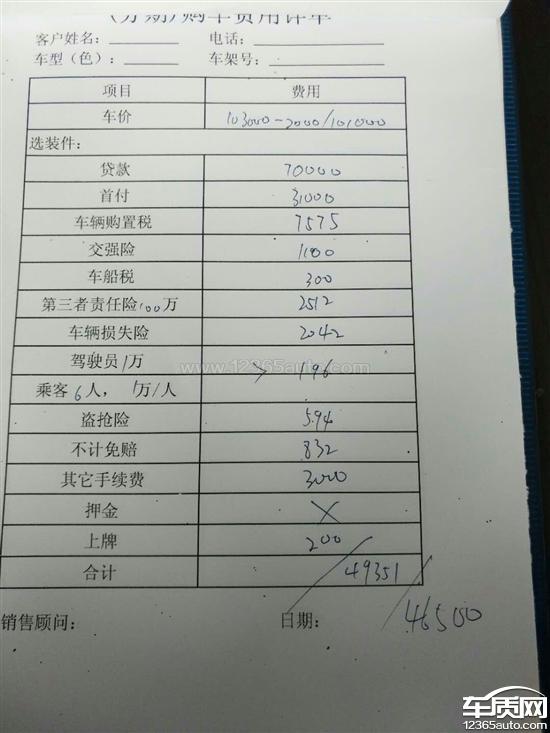 (分期)购车费用详单
客户姓名： 电话：
车型（色）： 车架号：
项目 费用
车价 103000-2000/101000
选装件：
贷款 70000
首付 31000
车辆购置税 7575
交强险 1100
车船税 300
第三者责任险100万 2512
车辆损失险 2042
驾驶员1万
乘客6人，1万/人 > 196
盗抢险 594
不计免赔 832
其它手续费 3000
押金 ×
上牌 200
合计 49351
46500
销售顾问： 日期：
www.12365auto.com
车质网
12365auto.com